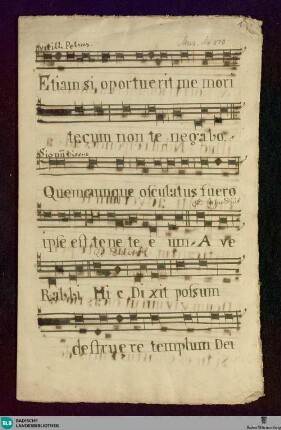 Etiam si, oportuerit me mori
tecum non te negabo.
Quemcumque osculatus fuero
ipse est, tene te e um. A ve
Rabbi, Hi c Di xit possum
destrue re templum Dei
BLB BADISCHE
LANDESBIBLIOTHEK